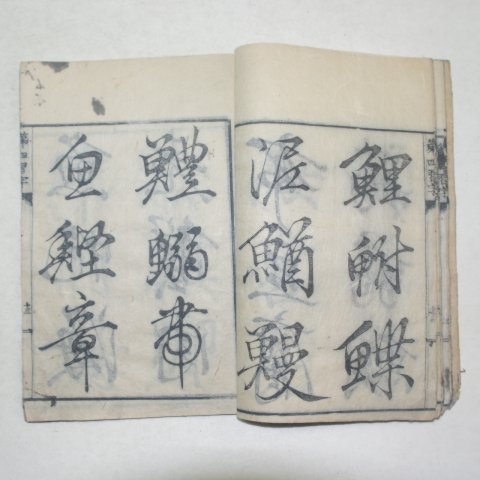 鯉鮒鰈
泥鰌鰻
鱧鰯帯
魚鰹章